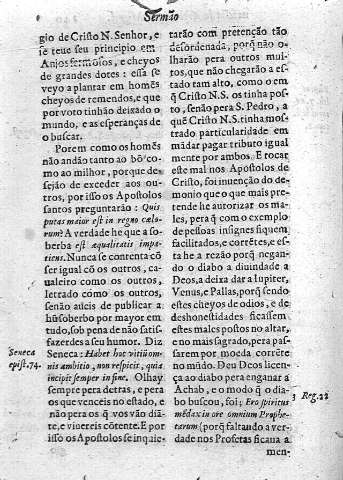 Sermão
gio de Cristo N. Senhor, e
se teue seu principio em
Anjos fermosos, e cheyos
de grandes dotes: essa se
veyo a plantar em homẽs
cheyos de remendos, e que
por voto tinhão deixado o
mundo, e as esperanças de
o buscar.
Porem como os homẽs
não andão tanto ao bõ como
ao milhor, porque de-
sejão de exceder aos ou-
tros, por isso os Apostolos
santos preguntarão: Quis
putas maior est in regno cælo-
rum? A verdade he que a so-
berba est æqualitatis impa-
tiens. Nunca se contenta cõ
ser igual cõ os outros, ca-
ualeiro como os outros,
letrado como os outros,
senão aueis de publicar a
hũ soberbo por mayor em
tudo, sob pena de não satis-
fazerdes a seu humor. Diz
Seneca: Habet hoc vitiũ om-
nis ambitio, non respicit, quia
incipit semper in fine. Olhay
sempre pera detras, e pera
os que venceis no estado, e
não pera os q̃ vos vão diã-
te, e viuereis cõtente. E por
isso os Apostolos se inquie-
Seneca
epist. 74.
tarão com pretenção tão
desordenada, porq̃ não o-
lharão pera outros mui-
tos, que não chegarão a es-
tado tam alto, como o em
q̃ Cristo N.S. os tinha pos-
to, senão pera S. Pedro, a
quẽ Cristo N.S. tinha mos-
trado particularidade em
mãdar pagar tributo igual
mente por ambos. E tocar
este mal nos Apostolos de
Cristo, foi inuenção do de-
monio que o que mais pre-
tende he autorizar os ma-
les, pera q̃ com o exemplo
de pessoas insignes fiquem
facilitados, e corrẽtes, e es-
ta he a rezão porq̃ negan-
do o diabo a diuindade a
Deos, a deixa dar a Iupiter,
Venus, e Pallas, porq̃ sendo
estes cheyos de odios, e de-
shonestidades ficassem
estes males postos no altar,
e no mais sagrado, pera pas-
sarem por moeda corrẽte
no mũdo. Deu Deos licen-
ça ao diabo pera enganar a
Achab, e o modo q̃ o dia-
bo buscou, foi; Ero spiritus
mẽdax in ore omnium Prophe-
tarum (porq̃ faltando a ver-
dade nos Profetas ficaua a
men-
3 Reg. 22